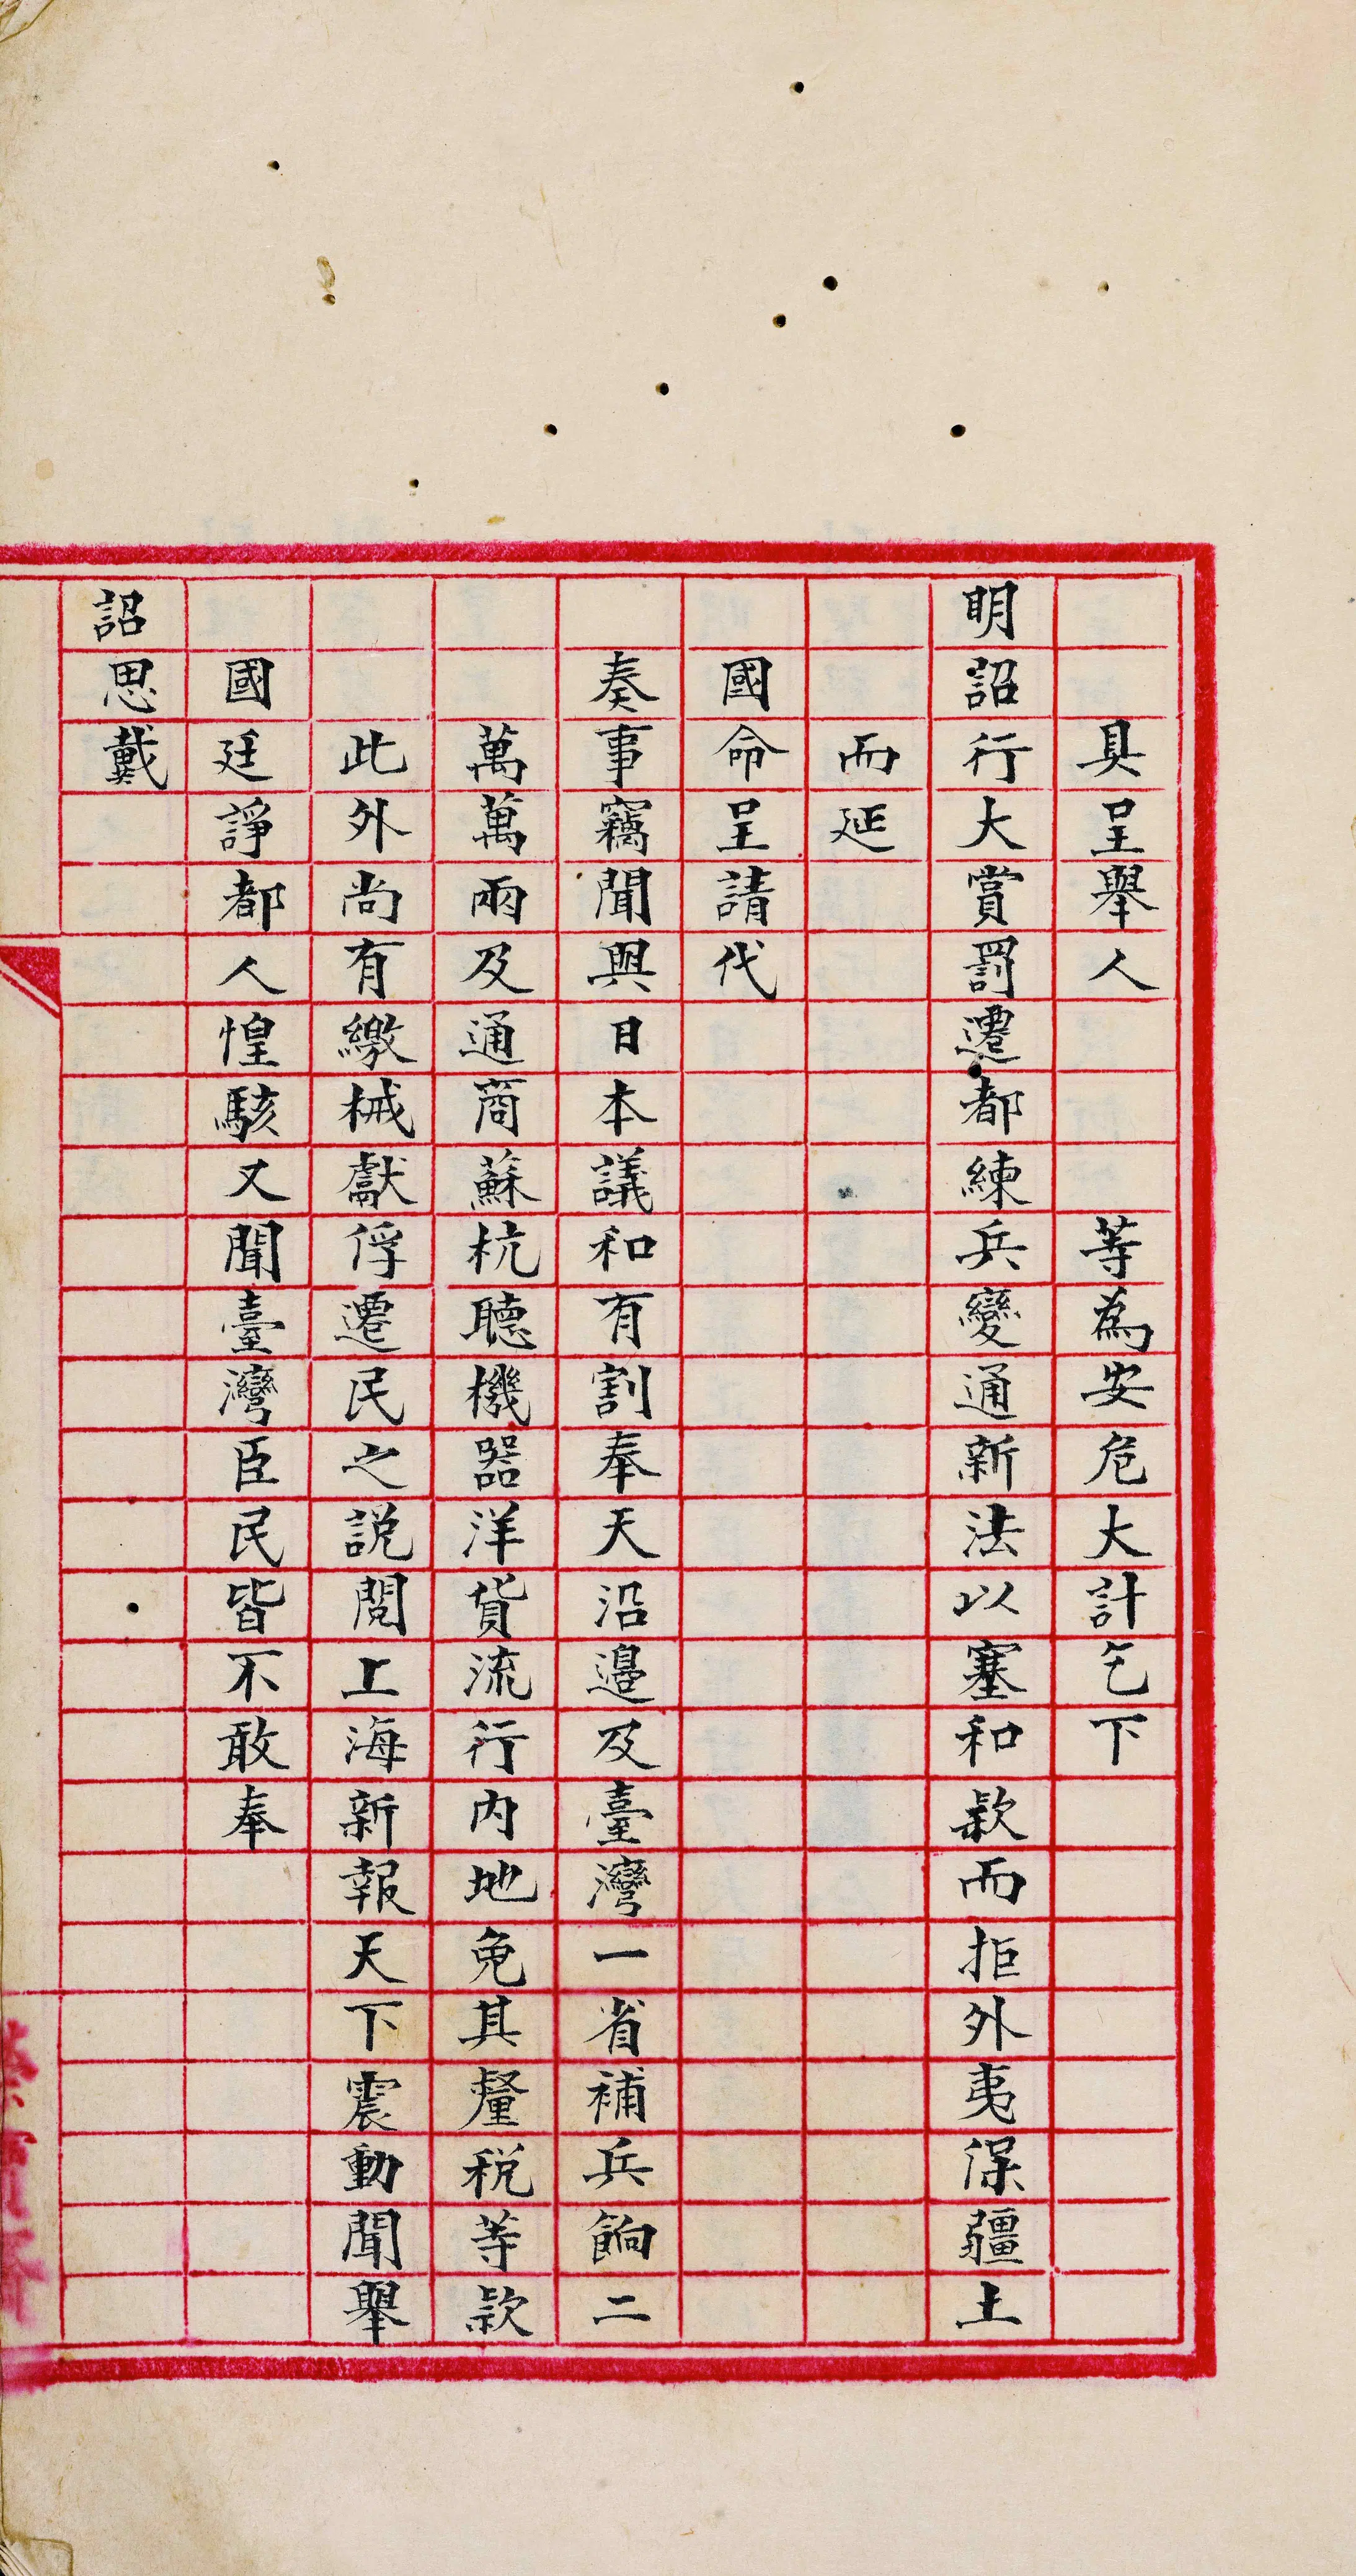 具呈舉人　　　等為安危大計乞下
明詔行大賞罰遷都練兵變通新法以塞和款而拒外夷保疆土
而延
國命呈請代
奏事竊聞與日本議和有割奉天沿邊及臺灣一省補兵餉二
萬萬兩及通商蘇杭聽機器洋貨流行內地免其釐稅等款
此外尚有繳械獻俘遷民之說閱上海新報天下震動聞舉
國廷諍都人惶駭又聞臺灣臣民皆不敢奉
詔思戴